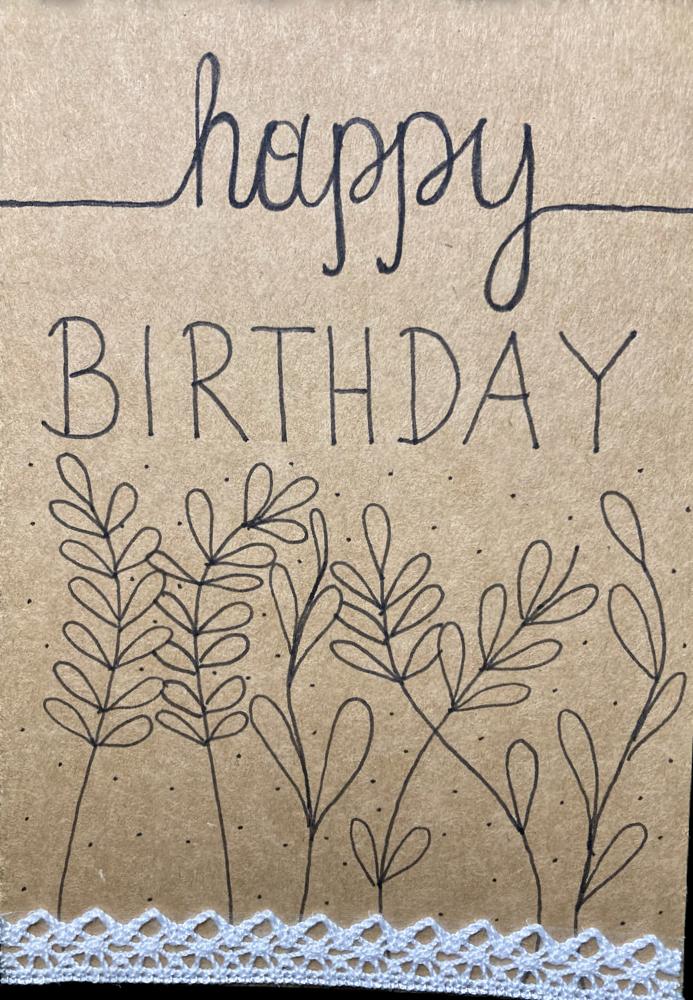 happy
BIRTHDAY